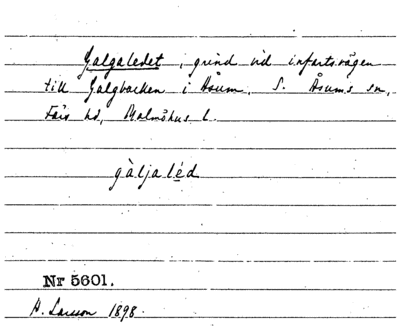 Galgaledet, grind vid infartsvägen
till Galgbacken i Åsum. S. Åsums sn,
Färs hd, Malmöhus l.
gàljaléd
Nr 5601.
H. Larsson 1898.